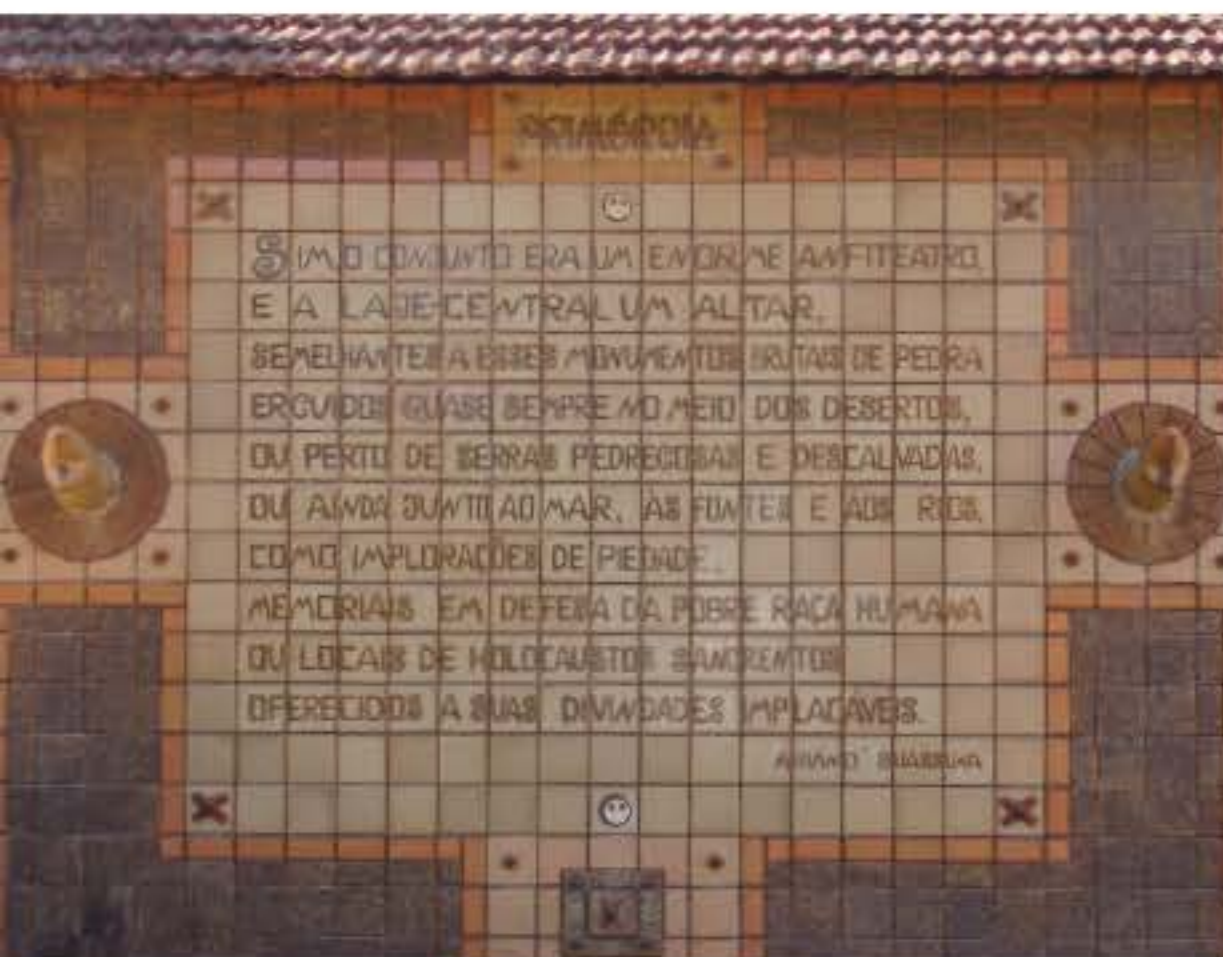 PRIMÓRDIA
SIM, O CONJUNTO ERA UM ENORME ANFITEATRO,
E A LAJE-CENTRAL UM ALTAR,
SEMELHANTES A ESSES MONUMENTOS BRUTAIS DE PEDRA
ERGUIDOS QUASE SEMPRE NO MEIO DOS DESERTOS,
OU PERTO DE SERRAS PEDREGOSAS E DESCALVADAS,
OU AINDA JUNTO AO MAR, ÀS FONTES E AOS RIOS,
COMO IMPLORAÇÕES DE PIEDADE,
MEMORIAIS EM DEFESA DA POBRE RAÇA HUMANA
OU LOCAIS DE HOLOCAUSTOS SANGRENTOS
OFERECIDOS A SUAS DIVINDADES IMPLACÁVEIS.
ARIANO SUASSUNA